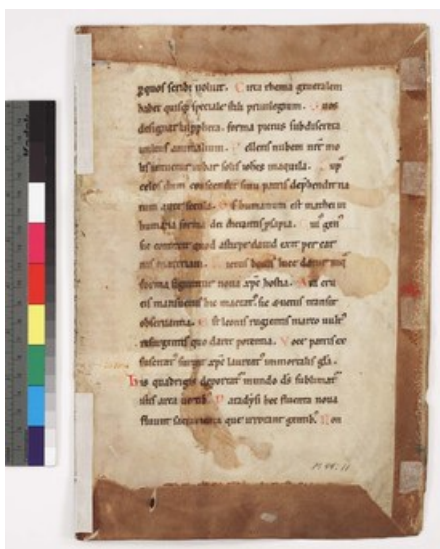 p quos scribi voluit. Circa thema generalem
habet quisq speciale stili privilegium. Quos
designat in pphera. forma pictus sub discreta
vultus animalium. Pellens nubem nre mo
lis intuetur iubar solis iohes in aquila. Sup
celos dum conscendit sinu patris dephendit na
tum ante secula. Os humanum est mathei in
humana forma dei dictantis psapia. Cui gen
sic contexit quod astirpe david exit per car
nis materiam. Rictus bovis luce datur
forma figuratur nova xpc hostia. Ara cru
cis mansuetus hic mactat sic & vetus transit
observantia. Est leonis rugientis marco vult
resurgentis quo claret potentia. Voce patris ex
surgit xpc laureat immortalis gla.
His quadrigis deportat mundo ds sublimat
istis arca vectib. Paradysi hec fluenta nova
fluunt sacramenta que irrorant gentib. Non